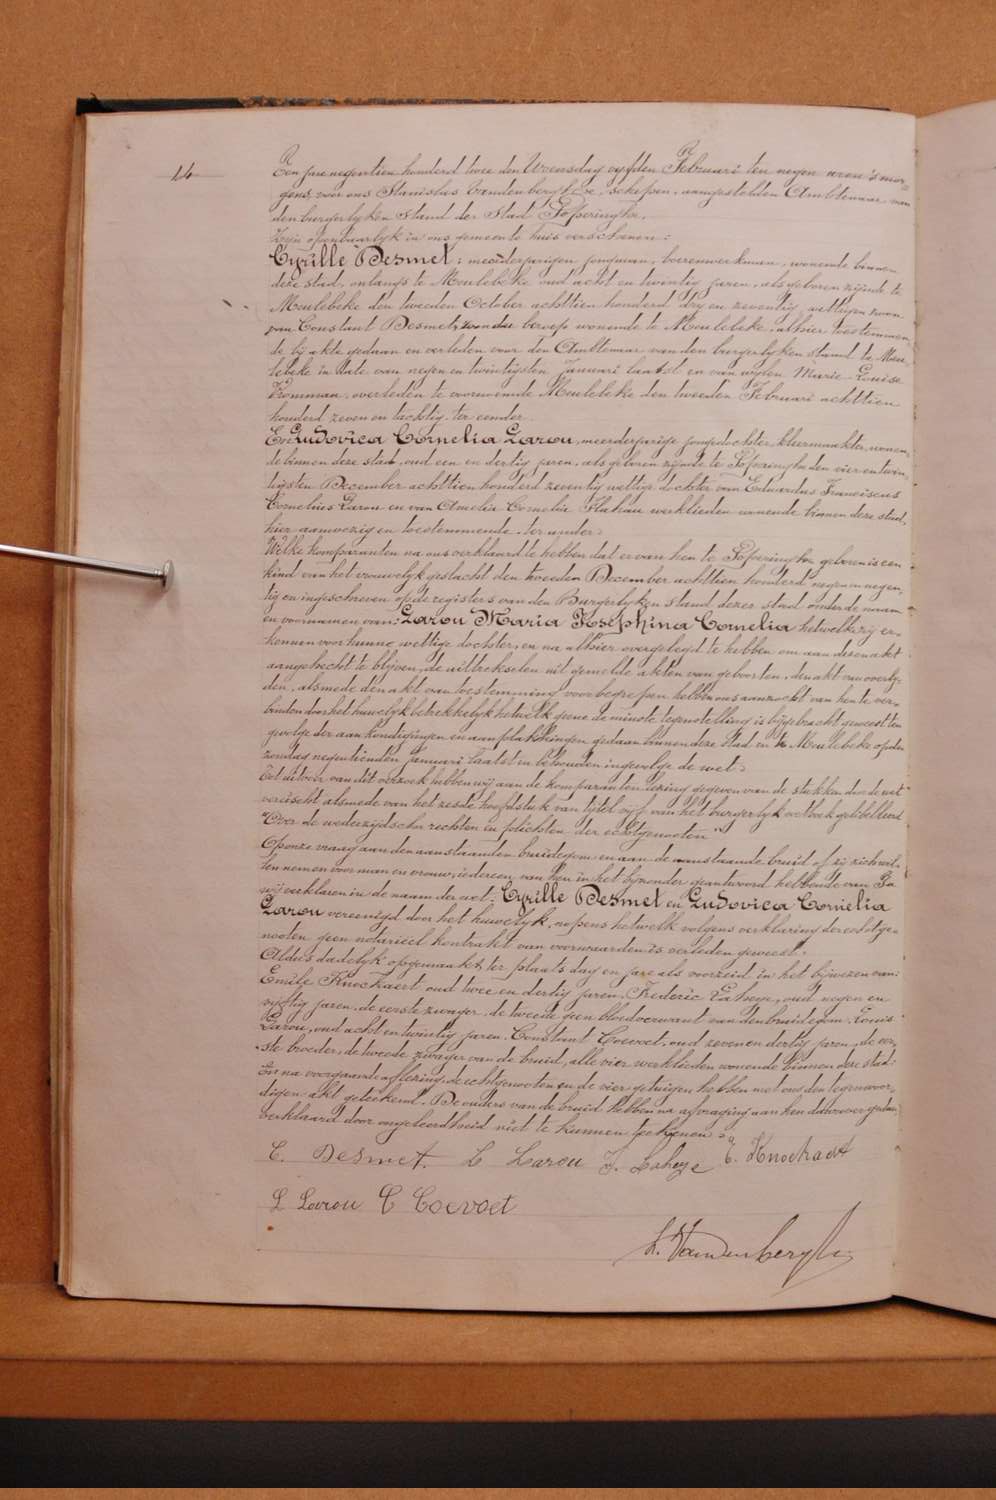 14
Een jare negentien honderd twee den Woensdag vyfden Februari ten negen uren 's mor-
gens, voor ons Stanislas Vandenberghe, schepen, aangestelden Ambtenaar van
den burgerlyken stand der stad Poperinghe,
Zyn openbaarlyk in ons gemeente huis verschenen:
Cyrille Desmet, meerderjarigen jongman, boerenwerkman, wonende binnen
deze stad, onlangs te Meulebeke oud acht en twintig jaren, als geboren zijnde te
Meulebeke den tweeden October achttien honderd dry en zeventig, wettigen zoon
van Constant Desmet, zonder beroep wonende te Meulebeke, alhier toestemmen-
de bij akte gedaan en verleden voor den Ambtenaar van den burgerlyken stand te Meu-
lebeke in date van negen en twintigsten Januari laatst en van wylen Marie Louise
overleden te voornoemde Meulebeke den tweeden Februari achttien
honderd zeven en tachtig. ter eender
En Ludovica Cornelia Larou, meerderjarige jongedochter, kleermaakster, wonen-
de binnen deze stad, oud een en dertig jaren, als geboren zijnde te Poperinghe den vier en twin-
tigsten December achttien honderd zeventig wettige dochter van Eduardus Franciscus
Cornelius Larou en van Amelia Cornelia werklieden wonende binnen deze stad,
hier aanwezig en toestemmende. ter ander.
Welke komparanten na ons verklaard te hebben dat er van hen te Poperinghe geboren is een
kind van het vrouwelyk geslacht den tweeden December achttien honderd negen en negen-
tig en ingeschreven op de registers van den Burgerlyken stand dezer stad onder de naam
en voornamen van: Larou Maria Josephina Cornelia hetwelk zij er-
kennen voor hunne wettige dochter, en na alhier overgelegd te hebben om aan dezen akt
aangehecht te blijven, de uittrekselen uit gemelde akten van geboorten, den akt van overly-
den, alsmede den akt van toestemming voorbegrepen hebben ons aanzocht van hen te ver-
binden door het huwelyk betrekkelyk hetwelk geene de minste tegenstelling is bijgebracht geweest ten
gevolge der aankondigingen en aanplakkingen gedaan binnen deze stad en te Meulebeke op den
zondag negentienden Januari laatst en behouden ingevolge de wet.
Tot uitvoer van dit verzoek hebben wij aan de komparanten lezing gegeven van de stukken door de wet
vereischt alsmede van het zesde hoofdstuk van tijtel vyf van het burgerlyk wetboek getitelleerd
"Over de wederzijdsche rechten en plichten der echtgenooten"
Op onze vraag aan den aanstaanden bruidegom en aan de aanstaande bruid of zij zich wil-
len nemen voor man en vrouw, iedereen van hen in het bijzonder geantwoord hebbende van Ja
wij verklaren in de naam der wet: Cyrille Desmet en Ludovica Cornelia
Larou vereenigd door het huwelyk, nopens hetwelk volgens verklaring der echtge-
nooten geen notariëel kontrakt van voorwaarden is verleden geweest.
Aldus dadelyk opgemaakt, ter plaats dag en jare als voorzeid in het bijwezen van:
Emile Knockaert oud twee en dertig jaren, Frederic Laheye, oud negen en
vyftig jaren, de eerste zwager, de tweede geen bloedverwant van den bruidegom, Louis
Larou, oud acht en twintig jaren, Constant Coevoet, oud zeven en dertig jaren, de eer-
ste broeder, de tweede zwager van de bruid, alle vier werklieden wonende binnen deze stad.
En na voorgaande aflezing, de echtgenooten en de vier getuigen hebben met ons den tegenwoor-
digen akt geteekend. De ouders van de bruid hebben na afvraging aan hen daarover gedaan
verklaard door ongeleerdheid niet te kunnen teekenen.
C. Desmet. L Larou F. Laheye E. Knockaert
L Larou C Coevoet
S. Vandenberghe